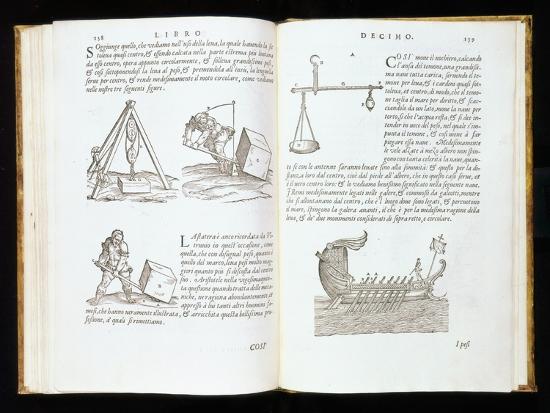 158
LIBRO
Soggiunge quello, che vediamo nell'uso della leua, la quale hauendo la sotto
centro, & essendo calcata nella parte estrema piu lontana
da esso centro, opera appunto circolarmente, & solleua grandissimi pesi,
& cosi sottoponendosi la leua al peso, & premendola
serue per centro, & rende medesimamente il moto circolare, come vediamo
nelle nostre tre seguenti figure.
La statera è ancor ricordata da Vi-
truuio in quest'occasione, come
quella, che con disugual pesi, quanto è
quello del marco, leua pesi molto mag-
giori quanto piu si discosta dal centro
suo. Aristotele nella vigesima
questione quando tratta delle
ne ragiona abondantemente, et
appresso à lui tanti altri huomini fa-
mosi, che hanno veramente illustrata, & arricchita questa bellissima pro-
fessione, a' quali si rimettiamo.
COSI
DECIMO.
159
A
COSI moue il nochiero, calcando
l'ansa del temone, una grandissi-
ma naue tutta carica, seruendo il te-
mone per leua, & i cardeni quasi sot-
toleua, et centro, di modo, che il te-
mone taglia il mar per diritto, &
candola da un lato, moue la naue per
torto, si che l'acqua resta, & si
tender in uece del peso, nel quale s'im-
punta il temone, & cosi uiene à far
piegare essa naue. Medesimamente
le vele alzate à mezo albero non spin-
gono con tanta celerità la naue, quan-
to se con le antenne saranno leuate sino alla sommità: & questo per la di-
stanza, loro dal centro, che dal piede all'albero, che in questo caso serue, et
è il uero centro loro: & lo vediamo benissimo significato nella seguente naue.
I Remi medesimamente legati nelle galere, & commossi da galeotti, mentre
che si allontanano dal centro, che è l luogo doue sono legati, & percuotono
il mare, spingono la galera auanti, il che è per la medesima ragione della
leua, & de' due mouimenti considerati di sopra retto, e circolare.
I pesi